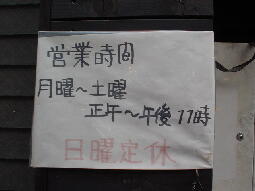 営業時間
月曜～土曜
正午～午後11時
日曜定休